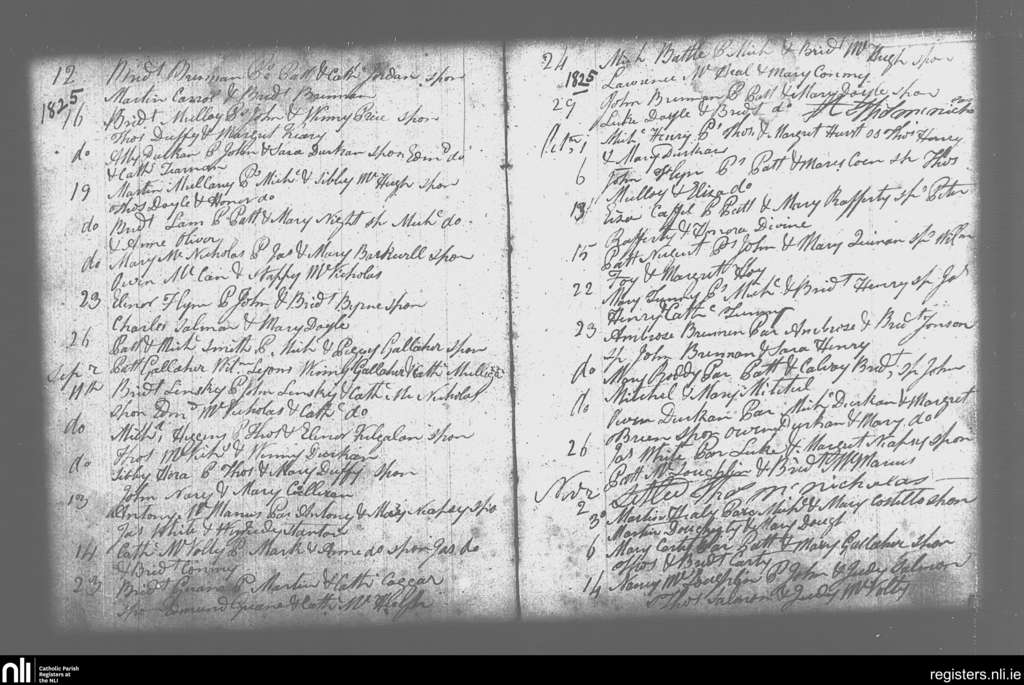 12 Bridt Brennan Ps Patt & Cath Jordan spon
1825
Martin Carrol & Bridt Brennan
16 Bridt Mulloy Ps John & Winny Price spon
Thos Duffy & Margret Keary
do Durkan P John & Sara Durkan spon Edmd do
& Cath Tiernan
19 Martin Mullany Ps Michl & Sibby Mc Hugh spon
Thos Doyle & Honor do
do Bridt Lam P Patt & Mary Night sp Michl do
& Anne Olivor
do Mary Mc Nicholas P Jas & Mary Barkwill spon
Owin Mc Can & Nappy Mc Nicholas
23 Elinor Flyn P John & Bridt Byrne spon
Charles Salmon & Mary Doyle
26 Patt & Michl Smith P Michl & Peggy Gallaher spon
Patt Gallaher Wil. Lyons Gallaher & Cath Mullign
Sepr 2
11th Bridt Linsky P John Linsky & Cath Mc Nicholas
spon Edmd Mc Nicholas & Cath do
do Michl Higgins P Thos & Elinor Kilgalan spon
Thos & Winny Durkan
do Sibby Hora P Thos & Mary Duffy spon
John Nary & Mary Cullivan
13 Anthony Mc Manus Par Antony & Mary Neaphsy Spo
Jas White & Stanton
14 Cath Mc Volty P Mark & Anne do spon Jas do
& Bridt Conmy
23 Bridt Guane P Martin & Cath
spon Edmund Guane & Cath Mc Hugh
24 Mich Battle P Mich & Bridt Mc Hugh spon
1825
Lawrance Mc Neal & Mary Conmy
29 John Brennan P Patt & Mary Doyle spon
Luke Doyle & Bridt do
Michl Henry Ps Thos & Margret Hurst sp Thos Henry
& Mary Durkan
6 John Flyn Ps Patt & Mary Coen sp Thos
Mulloy & Eliza do
13 Eliza P Patt & Mary Rafferty sp Peter
Rafferty & Honora Divine
15 Patt Nugent Ps John & Mary sp William
Foy & Margrett Foy
22 Mary Ps Michl & Bridt Henry sp Jas
Henry Cathc
23 Ambrose Brennen Par Ambrose & Bridt Jonson
sp John Brennan & Sara Henry
do Mary Boddy Par Patt & Bridt, sp John
Mitchel & Mary Mitchel
do Owen Durkan Par Michl Durkan & Margret
OBrien spon Owen Durkan & Mary do
26 Jas White Par Luke & Margret Neaphsy spon
Patt Mc Loughlin & Bridt Mc Manus
Novr
Settled Thos Mc Nicholas
2
3 Martin Healy Pars Michl & Mary Costillo spon
Martin Dougherty & Mary Dough
6 Mary Carty Par Patt & Mary Gallaher spon
Thos & Bridt Carty
14 Nancy Mc Loughlin P John & Judy Salmon
Thos Salmon & Judy Mc Volty
nli Catholic Parish
Registers at
the NLI
registers.nli.ie